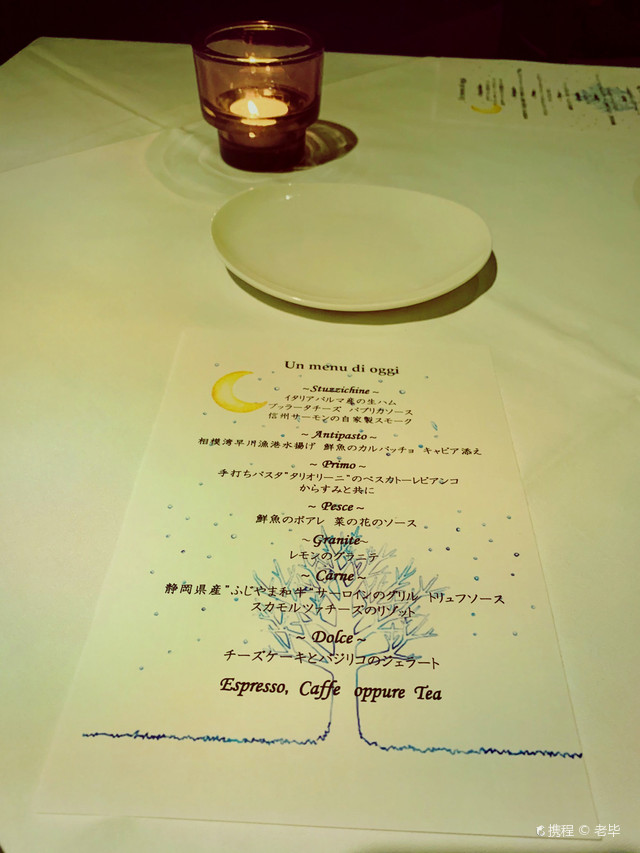 Un menu di oggi
~Stuzzichine~
イタリアパルマ産の生ハム
ブッラータチーズ パプリカソース
信州サーモンの自家製スモーク
~Antipasto~
相模湾早川漁港水揚げ 鮮魚のカルパッチョ キャビア添え
~ Primo~
手打ちパスタ"タリオリーニ"のペスカトーレビアンコ
からすみと共に
~ Pesce~
鮮魚のポアレ 菜の花のソース
~Granite~
レモンのグラニテ
~ Carne~
静岡県産"ふじやま和牛"サーロインのグリル トリュフソース
スカモルツァチーズのリゾット
~ Dolce~
チーズケーキとバジリコのジェラート
Espresso, Caffe oppure Tea
携程 © 老毕